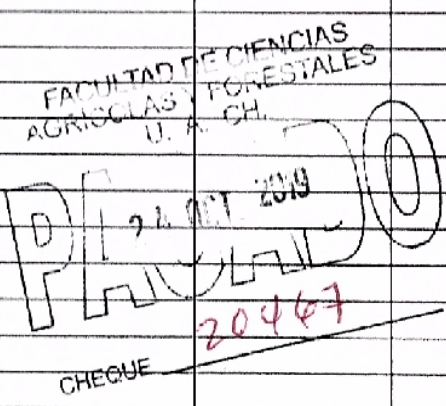 FACULTAD DE CIENCIAS
AGRICOLAS Y FORESTALES
U. A. CH.
PAGADO
24 OCT. 2019
20467
CHEQUE